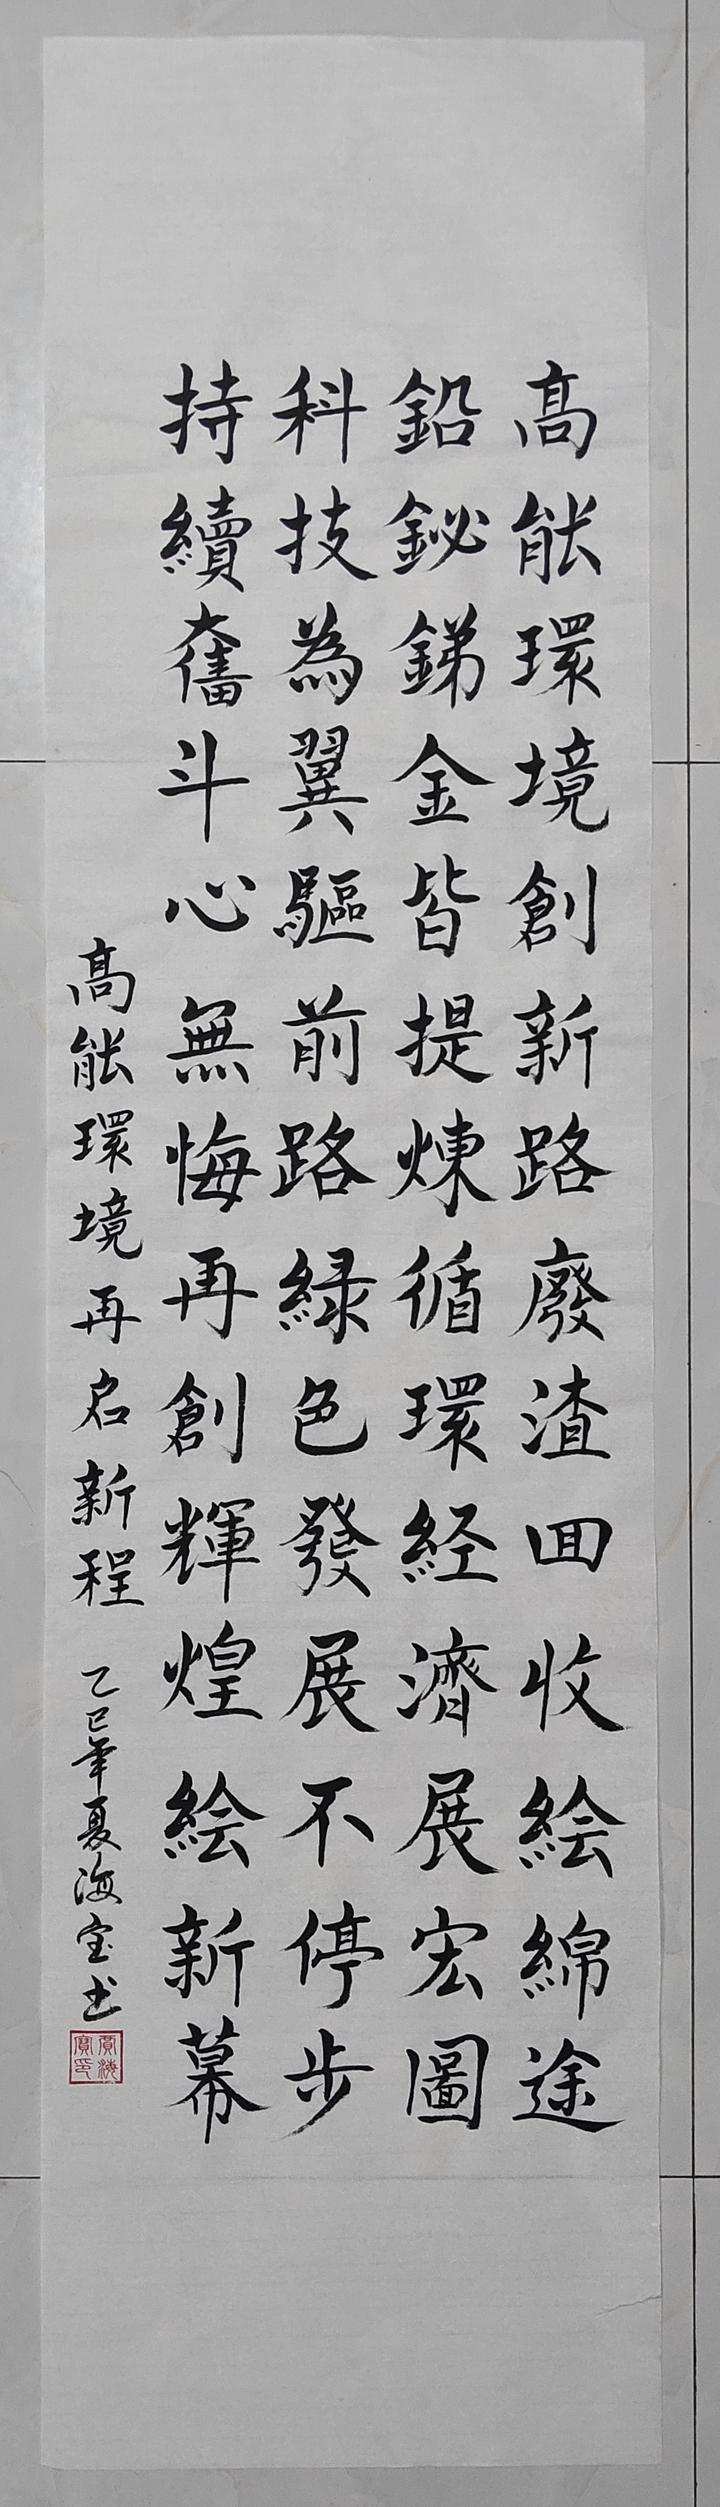 高能環境創新路廢渣回收绘綿途
鉛鉍銻金皆提煉循環経濟展宏圖
科技為翼驅前路緑色發展不停步
持續奮斗心無悔再創輝煌绘新幕
高能環境再启新程
乙巳年夏海宝书
賈海寶印